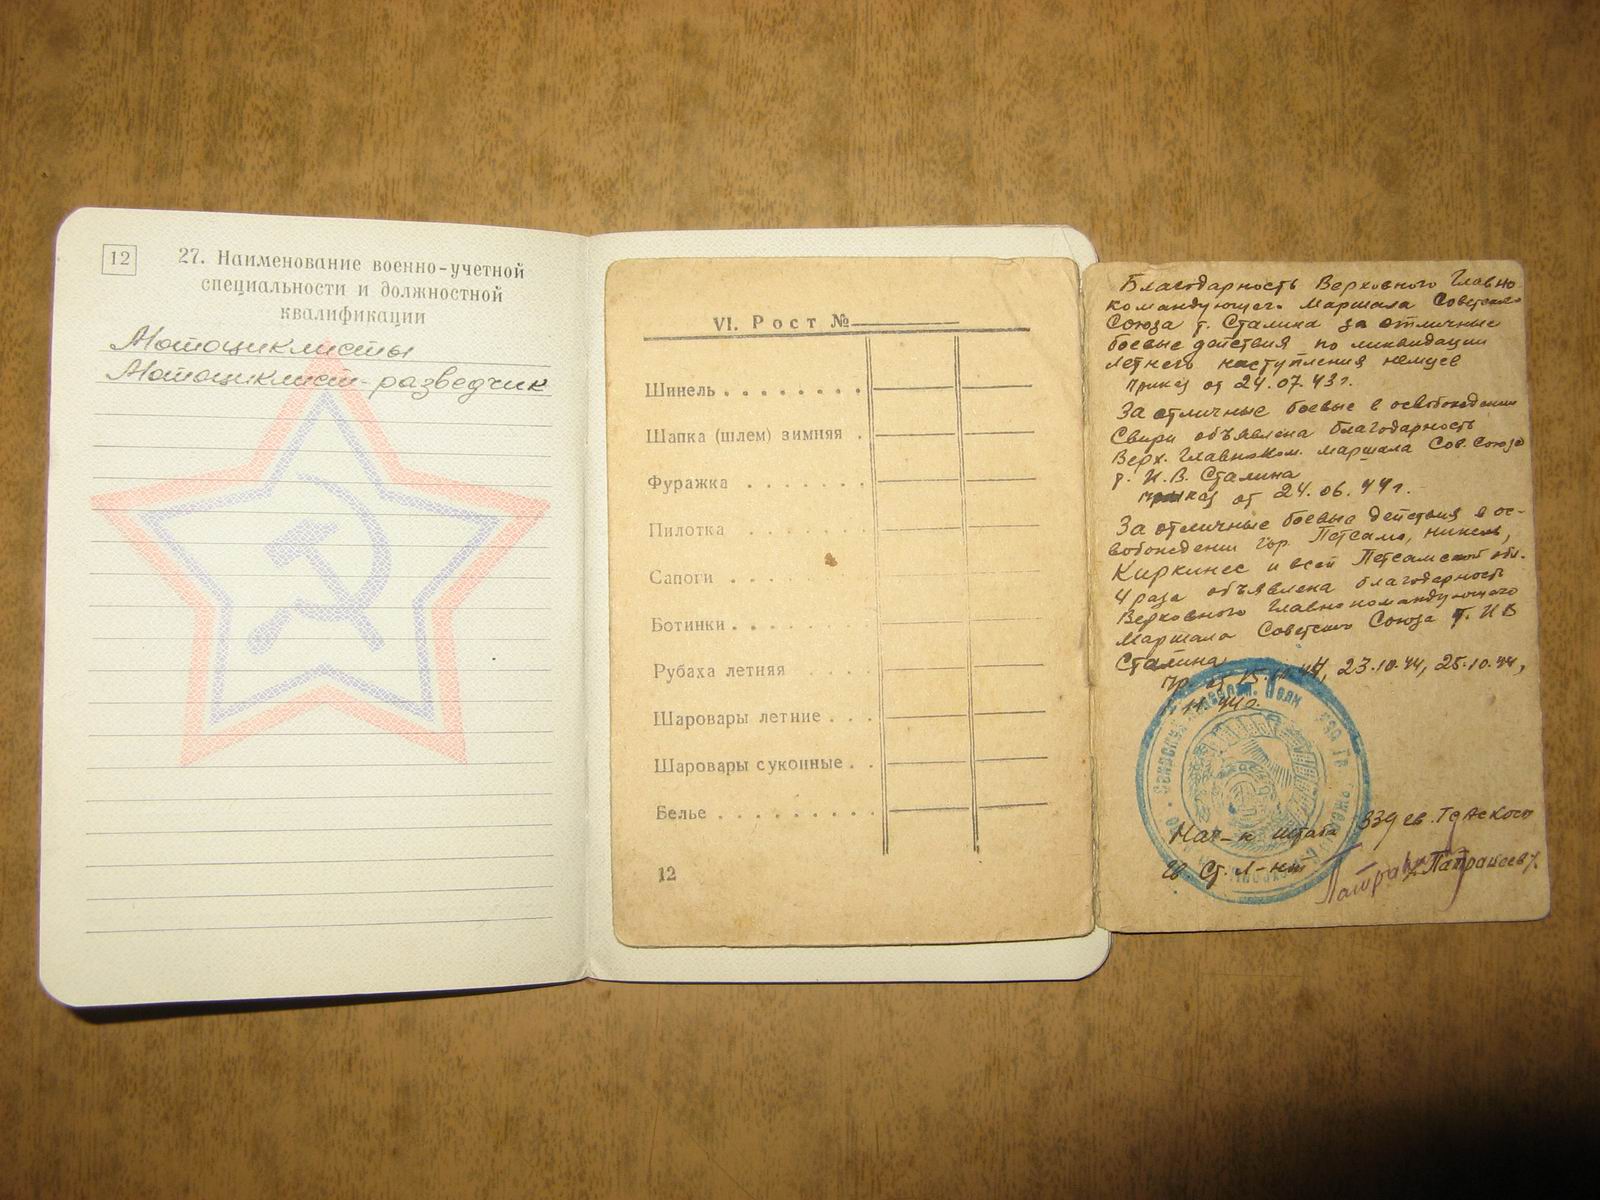 12
27. Наименование военно-учетной
специальности и должностной
квалификации
Мотоциклисты
Мотоциклист-разведчик
VI. Рост №
Шинель
Шапка (шлем) зимняя
Фуражка
Пилотка
Сапоги
Ботинки
Рубаха летняя
Шаровары летние
Шаровары суконные
Белье
12
Благодарность Верховного Главно-
командующего Маршала Советского
Союза т. Сталина за отличные
боевые действия по ликвидации
летнего наступления немцев
приказ от 24.07.43г.
За отличные боевые в освобождении
Свири объявлена благодарность
Верх. Главноком. маршала Сов. Союза
т. И. В. Сталина
приказ от 24.06.44г.
За отличные боевые действия в ос-
вобождении гор. Петсамо, Никель,
Киркинес и всей Петсамской обл.
4 раза объявлена благодарность
Верховного Главнокомандующего
Маршала Советского Союза т. И В
Сталина
пр. от 23.10.44, 25.10.44,
Нач-к штаба 339 гв.
Гв. Ст. Л-нт